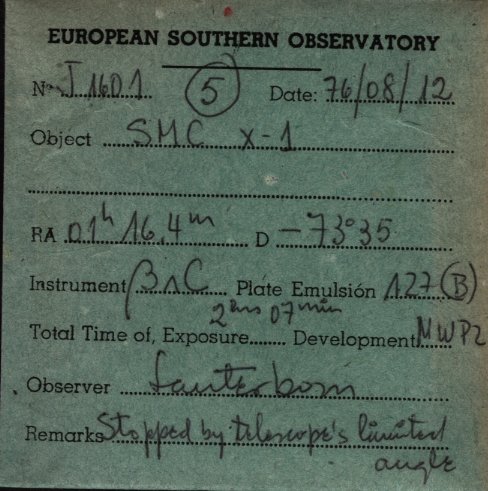 EUROPEAN SOUTHERN OBSERVATORY
No. J 1601 (5) Date: 76/08/12
Object SMC X-1
RA 01h 16.4m D -73°35
Instrument B&C Plate Emulsión 127 (B)
2 hrs 07 min
Total Time of, Exposure........ Development MWP2
Observer Lauterborn
Remarks Stopped by telescope's limited
angle